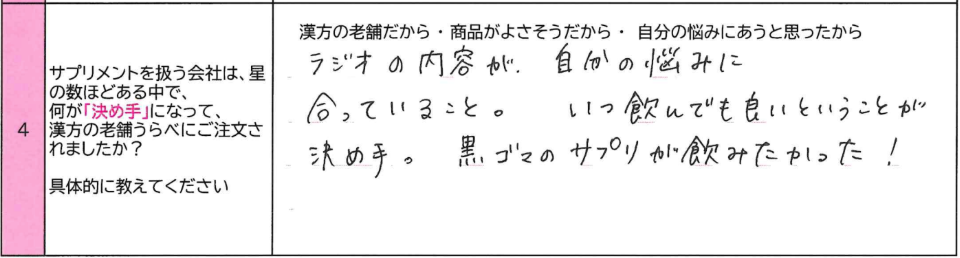 4
サプリメントを扱う会社は、星
の数ほどある中で、
何が「決め手」になって、
漢方の老舗うらべにご注文さ
れましたか？
具体的に教えてください
漢方の老舗だから・商品がよさそうだから・ 自分の悩みにあうと思ったから
ラジオの内容が、自分の悩みに
合っていること。 いつ飲んでも良いということが
決め手。 黒ゴマのサプリが飲みたかった！